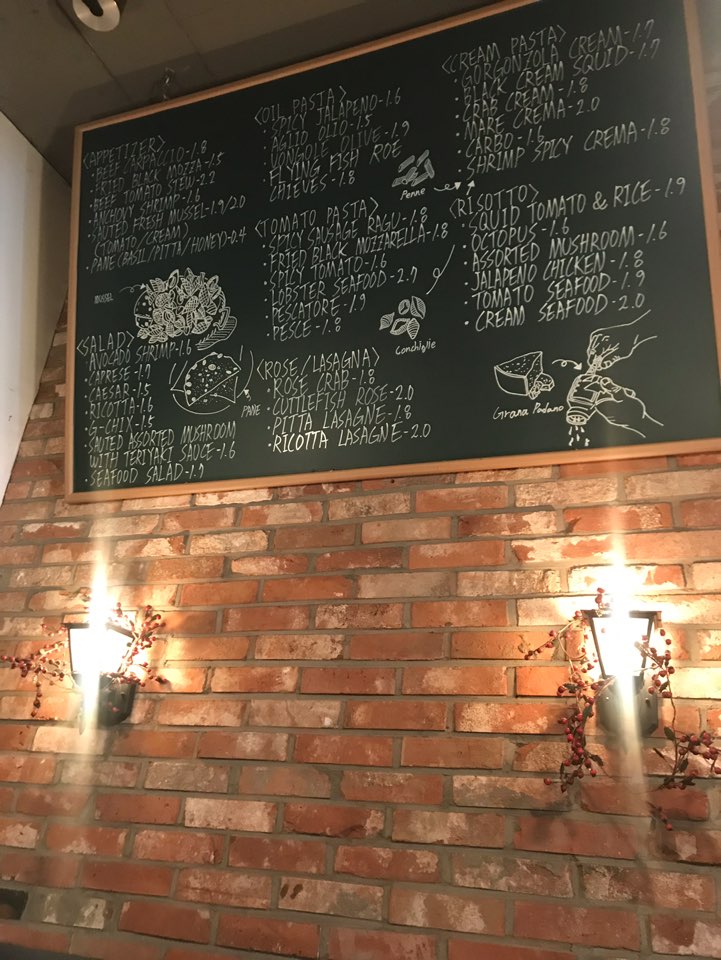 <APPETIZER>
· BEEF CARPACCIO-1.8
· FRIED BLACK MOZZA-1.5
· BEEF TOMATO STEW-2.2
· ANCHOVY SHRIMP-1.8
· SAUTED FRESH MUSSEL-1.9/2.0
(TOMATO/CREAM)
· PANE(BASIL/PITTA/HONEY)-0.4
MUSSEL
<SALAD>
· AVOCADO SHRIMP-1.6
· CAPRESE-1.7
· CAESAR-1.5
· RICOTTA-1.6
· G-CHIX-1.5
· SAUTED ASSORTED MUSHROOM
WITH TERIYAKI SAUCE-1.6
· SEAFOOD SALAD-1.7
PANE
<OIL PASTA>
· SPICY JALAPENO-1.6
· AGIIO OLIO-1.5
· VONGOLE OLIVE-1.9
· FLYING FISH ROE
CHIEVES-1.8
Penne
<TOMATO PASTA>
· SPICY SAUSAGE RAGU-1.8
· FRIED BLACK MOZZARELLA-1.8
· SPICY TOMATO-1.6
· LOBSTER SEAFOOD-2.7
· PESCATORE-1.9
· PESCE-1.8
Conchiglie
<ROSE/LASAGNA>
· ROSE CRAB-1.8
· CUTTLEFISH ROSE-2.0
· PITTA LASAGNE-1.8
· RICOTTA LASAGNE-2.0
<CREAM PASTA>
· GORGONZOLA CREAM-1.7
· BLACK CREAM SQUID-1.7
· CRAB CREAM-1.8
· MARE CREMA-2.0
· CARBO-1.6
· SHRIMP SPICY CREMA-1.8
<RISOTTO>
· SQUID TOMATO & RICE-1.9
· OCTOPUS-1.6
· ASSORTED MUSHROOM-1.6
· JALAPENO CHICKEN-1.8
· TOMATO SEAFOOD-1.9
· CREAM SEAFOOD-2.0
Grana Padano